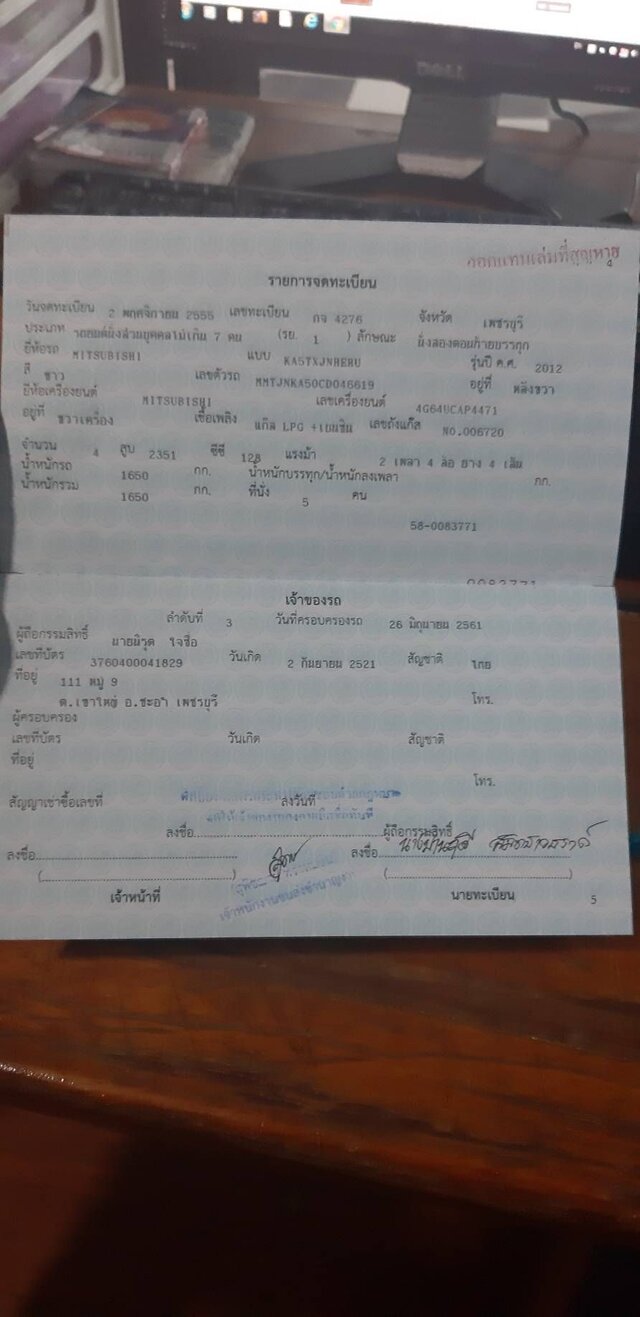 DELL
ออกแทนเล่มที่สูญหาย
4
รายการจดทะเบียน
วันจดทะเบียน 2 พฤศจิกายน 2555 เลขทะเบียน กจ 4276 จังหวัด เพชรบุรี
ประเภท รถยนต์นั่งส่วนบุคคลไม่เกิน 7 คน (รย. 1 ) ลักษณะ นั่งสองตอนท้ายบรรทุก
ยี่ห้อรถ MITSUBISHI แบบ KA5TXJNHERU รุ่นปี ค.ศ. 2012
สี ขาว เลขตัวรถ MMTJNKA50CD046619 อยู่ที่ หลังขวา
ยี่ห้อเครื่องยนต์ MITSUBISHI เลขเครื่องยนต์ 4G64UCAP4471
อยู่ที่ ขวาเครื่อง เชื้อเพลิง แก๊ส LPG +เบนซิน เลขถังแก๊ส NO.006720
จำนวน 4 สูบ 2351 ซีซี 128 แรงม้า 2 เพลา 4 ล้อ ยาง 4 เส้น
น้ำหนักรถ 1650 กก. น้ำหนักบรรทุก/น้ำหนักลงเพลา กก.
น้ำหนักรวม 1650 กก. ที่นั่ง 5 คน
58-0083771
0083771
เจ้าของรถ
ลำดับที่ 3 วันที่ครอบครองรถ 26 มิถุนายน 2561
ผู้ถือกรรมสิทธิ์ นายมิรุต ใจซื่อ
เลขที่บัตร 3760400041829 วันเกิด 2 กันยายน 2521 สัญชาติ ไทย
ที่อยู่ 111 หมู่ 9
ต.เขาใหญ่ อ.ชะอำ เพชรบุรี โทร.
ผู้ครอบครอง
เลขที่บัตร วันเกิด สัญชาติ
ที่อยู่
โทร.
สัญญาเช่าซื้อเลขที่ ลงวันที่
ลงชื่อ ผู้ถือกรรมสิทธิ์
ลงชื่อ ลงชื่อ
เจ้าหน้าที่ นายทะเบียน 5